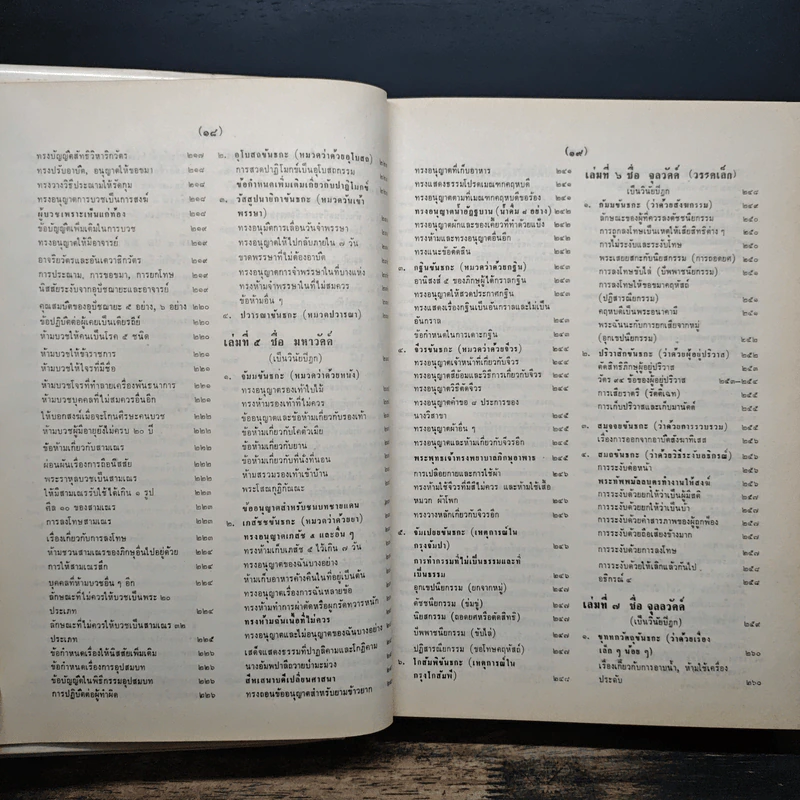 (๑๘)
ทรงบัญญัติสัทธิวิหาริกวัตร ๒๑๗
ทรงปรับอาบัติ, อนุญาตให้ขอขมา ๒๑๘
ทรงวางวิธีประณามให้รัดกุม ๒๑๘
ทรงอนุญาตการบวชเป็นการสงฆ์ ๒๑๘
ผู้บวชเพราะเห็นแก่ท้อง ๒๑๘
ข้อบัญญัติเพิ่มเติมในการบวช ๒๑๙
ทรงอนุญาตให้มีอาจารย์ ๒๑๙
อาจริยวัตรและอันเตวาสิกวัตร ๒๑๙
การประณาม, การขอขมา, การยกโทษ ๒๑๙
นิสสัยระงับจากอุปัชฌายะและอาจารย์
คุณสมบัติของอุปัชฌายะ ๕ อย่าง, ๖ อย่าง ๒๒๐
ข้อปฏิบัติต่อผู้เคยเป็นเดียรถีย์ ๒๒๐
ห้ามบวชให้คนเป็นโรค ๕ ชนิด ๒๒๐
ห้ามบวชให้ข้าราชการ
ห้ามบวชให้โจรที่มีชื่อ ๒๒๑
ห้ามบวชโจรที่ทำลายเครื่องพันธนาการ ๒๒๑
ห้ามบวชบุคคลที่ไม่สมควรอื่นอีก ๒๒๑
ให้บอกสงฆ์เมื่อจะโกนศีรษะคนบวช ๒๒๒
ห้ามบวชผู้มีอายุยังไม่ครบ ๒๐ ปี ๒๒๒
ข้อห้ามเกี่ยวกับสามเณร ๒๒๒
ผ่อนผันเรื่องการถือนิสสัย ๒๒๓
พระราหุลบวชเป็นสามเณร ๒๒๓
ให้มีสามเณรรับใช้ได้เกิน ๑ รูป ๒๒๓
ศีล ๑๐ ของสามเณร ๒๒๓
การลงโทษสามเณร ๒๒๓
เรื่องเกี่ยวกับการลงโทษ
ห้ามชวนสามเณรของภิกษุอื่นไปอยู่ด้วย ๒๒๔
การให้สามเณรสึก ๒๒๔
บุคคลที่ห้ามบวชอื่น ๆ อีก ๒๒๔
ลักษณะที่ไม่ควรให้บวชเป็นพระ ๒๐
ประเภท ๒๒๔
ลักษณะที่ไม่ควรให้บวชเป็นสามเณร ๓๒
ประเภท ๒๒๕
ข้อกำหนดเรื่องให้นิสสัยเพิ่มเติม ๒๒๖
ข้อกำหนดเรื่องการอุปสมบท ๒๒๖
ข้อบัญญัติในพิธีกรรมอุปสมบท ๒๒๖
การปฏิบัติต่อผู้ทำผิด ๒๒๖
๒. อุโบสถขันธกะ (หมวดว่าด้วยอุโบสถ)
การสวดปาฏิโมกข์เป็นอุโบสถกรรม
ข้อกำหนดเพิ่มเติมเกี่ยวกับปาฏิโมกข์
๓. วัสสูปนายิกาขันธกะ (หมวดวันเข้า
พรรษา)
ทรงอนุมัติการเลื่อนวันจำพรรษา
ทรงอนุญาตให้ไปกลับภายใน ๗ วัน
ขาดพรรษาที่ไม่ต้องอาบัติ
ทรงอนุญาตการจำพรรษาในที่บางแห่ง
ทรงห้ามจำพรรษาในที่ไม่สมควร
ข้อห้ามอื่น ๆ
๔. ปวารณาขันธกะ (หมวดปวารณา)
เล่มที่ ๕ ชื่อ มหาวัคค์
(เป็นวินัยปิฎก)
๑. จัมมขันธกะ (หมวดว่าด้วยหนัง)
ทรงอนุญาตรองเท้าใบไม้
ทรงห้ามรองเท้าที่ไม่ควร
ข้ออนุญาตและข้อห้ามเกี่ยวกับรองเท้า
ข้อห้ามเกี่ยวกับโคตัวเมีย
ข้อห้ามเกี่ยวกับยาน
ข้อห้ามเกี่ยวกับที่นั่งที่นอน
ห้ามสวมรองเท้าเข้าบ้าน
พระโสณกุฏิกัณณะ
ข้ออนุญาตสำหรับชนบทชายแดน
๒. เภสัชชขันธกะ (หมวดว่าด้วยยา)
ทรงอนุญาตเภสัช ๕ และอื่น ๆ
ทรงห้ามเก็บเภสัช ๕ ไว้เกิน ๗ วัน
ทรงอนุญาตของฉันบางอย่าง
ห้ามเก็บอาหารค้างคืนในที่อยู่เป็นต้น
ทรงอนุญาตเรื่องการฉันหลายข้อ
ทรงห้ามทำการผ่าตัดหรือผูกรัดทวารหนัก
ทรงห้ามฉันเนื้อที่ไม่ควร
ทรงอนุญาตและไม่อนุญาตของฉันบางอย่าง
เสด็จแสดงธรรมที่ปาฏลิคามและโกฏิคาม
นางอัมพปาลีถวายป่ามะม่วง
สีหเสนาบดีเปลี่ยนศาสนา
ทรงถอนข้ออนุญาตสำหรับยามข้าวยาก
(๑๙)
ทรงอนุญาตที่เก็บอาหาร ๒๔๑
ทรงแสดงธรรมโปรดเมณฑกคฤหบดี ๒๔๑
ทรงอนุญาตตามที่เมณฑกคฤหบดีขอร้อง ๒๔๑
ทรงอนุญาตน้ำอัฏฐบาน (น้ำดื่ม ๘ อย่าง) ๒๔๒
ทรงอนุญาตผักและของเคี้ยวที่ทำด้วยแป้ง ๒๔๒
ทรงห้ามและทรงอนุญาตอื่นอีก ๒๔๒
ทรงแนะข้อตัดสิน ๒๔๓
๓. กฐินขันธกะ (หมวดว่าด้วยกฐิน) ๒๔๓
อานิสงส์ ๕ ของภิกษุผู้ได้กรานกฐิน ๒๔๓
ทรงอนุญาตให้สวดประกาศกฐิน ๒๔๓
ทรงแสดงเรื่องกฐินเป็นอันกรานและไม่เป็น
อันกราน ๒๔๓
ข้อกำหนดในการเดาะกฐิน ๒๔๓
๔. จีวรขันธกะ (หมวดว่าด้วยจีวร) ๒๔๔
ทรงอนุญาตเจ้าหน้าที่เกี่ยวกับจีวร ๒๔๔
ทรงอนุญาตสีย้อมและวิธีการเกี่ยวกับจีวร ๒๔๔
ทรงอนุญาตวิธีตัดจีวร ๒๔๔
ทรงอนุญาตคำขอ ๘ ประการของ
นางวิสาขา ๒๔๕
ทรงอนุญาตผ้าอื่น ๆ ๒๔๕
ทรงอนุญาตและห้ามเกี่ยวกับจีวรอีก ๒๔๕
พระพุทธเจ้าทรงพยาบาลภิกษุอาพาธ ๒๔๕
การเปลือยกายและการใช้ผ้า ๒๔๖
ทรงห้ามใช้จีวรที่มีสีไม่ควร และห้ามใช้เสื้อ
หมวก ผ้าโพก ๒๔๖
ทรงวางหลักเกี่ยวกับจีวรอีก ๒๔๖
๕. จัมเปยยขันธกะ (เหตุการณ์ใน
กรุงจัมปา) ๒๔๖
การทำกรรมที่ไม่เป็นธรรมและที่
เป็นธรรม ๒๔๖
อุกเขปนียกรรม (ยกจากหมู่) ๒๔๗
ตัชชนียกรรม (ข่มขู่) ๒๔๗
นิยสกรรม (ถอดยศหรือตัดสิทธิ) ๒๔๗
ปัพพาชนียกรรม (ขับไล่) ๒๔๗
ปฏิสารณียกรรม (ขอโทษคฤหัสถ์) ๒๔๗
๖. โกสัมพิขันธกะ (เหตุการณ์ใน
กรุงโกสัมพี) ๒๔๘
เล่มที่ ๖ ชื่อ จุลวัคค์ (วรรคเล็ก)
เป็นวินัยปิฎก ๒๔๙
๑. กัมมขันธกะ (ว่าด้วยสังฆกรรม) ๒๔๙
ลักษณะของผู้ที่ควรลงตัชชนียกรรม ๒๕๐
การถูกลงโทษเป็นเหตุให้เสียสิทธิต่าง ๆ ๒๕๐
การไม่ระงับและระงับโทษ ๒๕๐
พระเสยยสกะกับนิยสกรรม (การถอดยศ) ๒๕๐
การลงโทษขับไล่ (ปัพพาชนียกรรม) ๒๕๑
การลงโทษให้ขอขมาคฤหัสถ์
(ปฏิสารณียกรรม) ๒๕๑
คฤหบดีเป็นพระอนาคามี ๒๕๑
พระฉันนะกับการยกเสียจากหมู่
(อุกเขปนียกรรม) ๒๕๑
๒. ปริวาสิกขันธกะ (ว่าด้วยผู้อยู่ปริวาส) ๒๕๒
ตัดสิทธิภิกษุผู้อยู่ปริวาส ๒๕๓
วัตร ๙๔ ข้อของผู้อยู่ปริวาส ๒๕๓–๒๕๔
การเสียราตรี (รัตติเฉท) ๒๕๕
การเก็บปริวาสและเก็บมานัตต์ ๒๕๕
๓. สมุจจยขันธกะ (ว่าด้วยการรวบรวม) ๒๕๕
เรื่องการออกจากอาบัติสังฆาทิเสส ๒๕๕
๔. สมถขันธกะ (ว่าด้วยวิธีระงับอธิกรณ์) ๒๕๖
การระงับต่อหน้า ๒๕๖
พระทัพพมัลลบุตรทำงานให้สงฆ์ ๒๕๖
การระงับด้วยยกให้ว่าเป็นผู้มีสติ ๒๕๗
การระงับด้วยยกให้ว่าเป็นบ้า ๒๕๗
การระงับด้วยคำสารภาพของผู้ถูกฟ้อง ๒๕๗
การระงับด้วยถือเสียงข้างมาก ๒๕๗
การระงับด้วยการลงโทษ ๒๕๗
การระงับด้วยให้เลิกแล้วกันไป ๒๕๘
อธิกรณ์ ๔ ๒๕๘
เล่มที่ ๗ ชื่อ จุลวัคค์
(เป็นวินัยปิฎก) ๒๕๙
๑. ขุททกวัตถุขันธกะ (ว่าด้วยเรื่อง
เล็ก ๆ น้อย ๆ) ๒๖๐
เรื่องเกี่ยวกับการอาบน้ำ, ห้ามใช้เครื่อง
ประดับ ๒๖๐